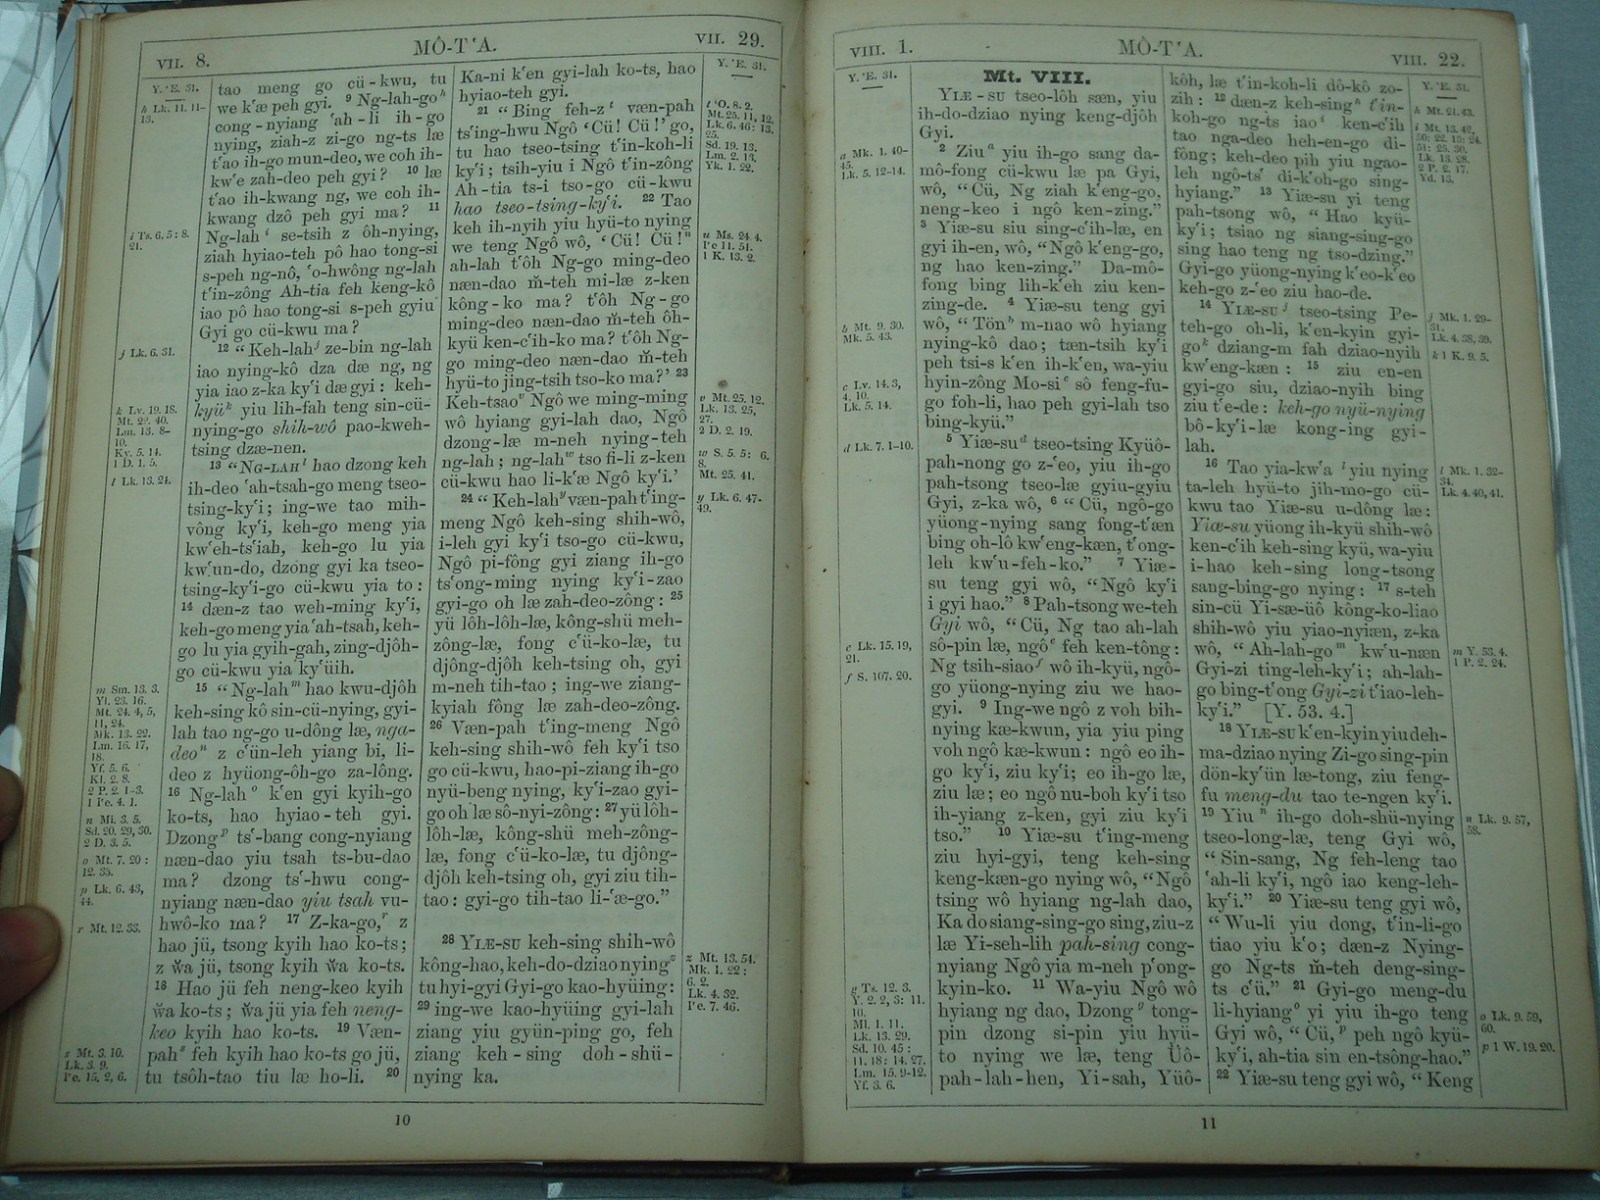 VII. 8.
MÔ-TʻA.
VII. 29.
Y. ʻE. 31.
h Lk. 11. 11-
13.
i Ts. 6. 5: 8.
21.
j Lk. 6. 31.
k Lv. 19. 18.
Mt. 22. 40.
Lm. 13. 8-
10.
Ky. 5. 14.
1 D. 1. 5.
l Lk. 13. 24.
m Sm. 13. 3.
Yl. 23. 16.
Mt. 24. 4, 5,
11, 24.
Mk. 13. 22.
Lm. 16. 17,
18.
Yf. 5. 6.
Kl. 2. 8.
2 P. 2. 1-3.
1 Pe. 4. 1.
n Mi. 3. 5.
Sd. 20. 29, 30.
2 D. 3. 5.
o Mt. 7. 20:
12. 35.
p Lk. 6. 43,
44.
r Mt. 12. 33.
s Mt. 3. 10.
Lk. 3. 9.
Pe. 15. 2, 6.
tao meng go cü-kwu, tu
we kʻæ peh gyi. 9 Ng-lah-go h
cong-nyiang ʻah-li ih-go
nying, ziah-z zi-go ng-ts læ
tʻao ih-go mun-deo, we coh ih-
kwʻe zah-deo peh gyi? 10 læ
tʻao ih-kwang ng, we coh ih-
kwang dzô peh gyi ma? 11
Ng-lah i se-tsih z ôh-nying,
ziah hyiao-teh pô hao tong-si
s-peh ng-nô, ʻo-hwông ng-lah
tʻin-zông Ah-tia feh keng-kô
iao pô hao tong-si s-peh gyiu
Gyi go cü-kwu ma?
12 “Keh-lah j ze-bin ng-lah
iao nying-kô dza dæ ng, ng
yia iao z-ka kyʻi dæ gyi: keh-
kyü k yiu lih-fah teng sin-cü-
nying-go shih-wô pao-kweh-
tsing dzæ-nen.
13 “NG-LAH l hao dzong keh
ih-deo ʻah-tsah-go meng tseo-
tsing-kyʻi; ing-we tao mih-
vông kyʻi, keh-go meng yia
kwʻeh-tsʻiah, keh-go lu yia
kwʻun-do, dzong gyi ka tseo-
tsing-kyʻi-go cü-kwu yia to:
14 dæn-z tao weh-ming kyʻi,
keh-go meng yia ʻah-tsah, keh-
go lu yia gyih-gah, zing-djôh-
go cü-kwu yia kyʻüih.
15 “Ng-lah m hao kwu-djôh
keh-sing kô sin-cü-nying, gyi-
lah tao ng-go u-dông læ, nga-
deo n z cʻün-leh yiang bi, li-
deo z hyüong-ôh-go za-lông.
16 Ng-lah o kʻen gyi kyih-go
ko-ts, hao hyiao-teh gyi.
Dzong p tsʻ-bang cong-nyiang
næn-dao yiu tsah ts-bu-dao
ma? dzong tsʻ-hwu cong-
nyiang næn-dao yiu tsah vu-
hwô-ko ma? 17 Z-ka-go, r z
hao jü, tsong kyih hao ko-ts;
z w̌a jü, tsong kyih w̌a ko-ts.
18 Hao jü feh neng-keo kyih
w̌a ko-ts; w̌a jü yia feh neng-
keo kyih hao ko-ts. 19 Væn-
pah s feh kyih hao ko-ts go jü,
tu tsôh-tao tiu læ ho-li. 20
Ka-ni kʻen gyi-lah ko-ts, hao
hyiao-teh gyi.
21 “Bing feh-z t væn-pah
tsʻing-hwu Ngô ‘Cü! Cü!’ go,
tu hao tseo-tsing tʻin-koh-li
kyʻi; tsih-yiu i Ngô tʻin-zông
Ah-tia ts-i tso-go cü-kwu
hao tseo-tsing-kyʻi. 22 Tao
keh ih-nyih yiu hyü-to nying
we teng Ngô wô, ‘Cü! Cü!"
ah-lah tʻôh Ng-go ming-deo
næn-dao m̌-teh mi-læ z-ken
kông-ko ma? tʻôh Ng-go
ming-deo næn-dao m̌-teh ôh-
kyü ken-cʻih-ko ma? tʻôh Ng-
go ming-deo næn-dao m̌-teh
hyü-to jing-tsih tso-ko ma?’ 23
Keh-tsao v Ngô we ming-ming
wô hyiang gyi-lah dao, Ngô
dzong-læ m-neh nying-teh
ng-lah; ng-lah w tso fi-li z-ken
cü-kwu hao li-kʻæ Ngô kyʻi.’
24 “Keh-lah y væn-pah tʻing-
meng Ngô keh-sing shih-wô,
i-leh gyi kyʻi tso-go cü-kwu,
Ngô pi-fông gyi ziang ih-go
tsʻong-ming nying kyʻi-zao
gyi-go oh læ zah-deo-zông: 25
yü lôh-lôh-læ, kông-shü meh-
zông-læ, fong cʻü-ko-læ, tu
djông-djôh keh-tsing oh, gyi
m-neh tih-tao; ing-we ziang-
kyiah fông læ zah-deo-zông.
26 Væn-pah tʻing-meng Ngô
keh-sing shih-wô feh kyʻi tso
go cü-kwu, hao-pi-ziang ih-go
nyü-beng nying, kyʻi-zao gyi-
go oh læ sô-nyi-zông: 27 yü lôh-
lôh-læ, kông-shü meh-zông-
læ, fong cʻü-ko-læ, tu djông-
djôh keh-tsing oh, gyi ziu tih-
tao: gyi-go tih-tao li-ʻæ-go.”
28 YIÆ-SU keh-sing shih-wô
kông-hao, keh-do-dziao nying z
tu hyi-gyi Gyi-go kao-hyüing:
29 ing-we kao-hyüing gyi-lah
ziang yiu gyün-ping go, feh
ziang keh-sing doh-shü-
nying ka.
Y. ʻE. 31.
t ʻO. 8. 2.
Mt. 25. 11, 12.
Lk. 6. 46: 13.
25.
Sd. 19. 13.
Lm. 2. 13.
Yk. 1. 22.
u Ms. 24. 4.
Pe 11. 51.
1 K. 13. 2.
v Mt. 25. 12.
Lk. 13. 25,
27.
2 D. 2. 19.
w S. 5. 5: 6.
8.
Mt. 25. 41.
y Lk. 6. 47-
49.
z Mt. 13. 54.
Mk. 1. 22:
6. 2.
Lk. 4. 32.
Pe. 7. 46.
10
VIII. 1.
MÔ-TʻA.
VIII. 22.
Y. ʻE. 31.
a Mk. 1. 40-
45.
Lk. 5. 12-14.
b Mt. 9. 30.
Mk. 5. 43.
c Lv. 14. 3,
4, 10.
Lk. 5. 14.
d Lk. 7. 1-10.
e Lk. 15. 19,
21.
f S. 107. 20.
g Ts. 12. 3.
Y. 2. 2, 3: 11.
10.
Ml. 1. 11.
Lk. 13. 29.
Sd. 10. 45:
11. 18: 14. 27.
Lm. 15. 9-12.
Yf. 3. 6.
Mt. VIII.
YIÆ-SU tseo-lôh sæn, yiu
ih-do-dziao nying keng-djôh
Gyi.
2 Ziu a yiu ih-go sang da-
mô-fong cü-kwu læ pa Gyi,
wô, “Cü, Ng ziah kʻeng-go,
neng-keo i ngô ken-zing.”
3 Yiæ-su siu sing-cʻih-læ, en
gyi ih-en, wô, “Ngô kʻeng-go,
ng hao ken-zing.” Da-mô-
fong bing lih-kʻeh ziu ken-
zing-de. 4 Yiæ-su teng gyi
wô, “Tön b m-nao wô hyiang
nying-kô dao; tæn-tsih kyʻi
peh tsi-s kʻen ih-kʻen, wa-yiu
hyin-zông Mo-si c sô feng-fu-
go foh-li, hao peh gyi-lah tso
bing-kyü.”
5 Yiæ-su d tseo-tsing Kyüô-
pah-nong go z-ʻeo, yiu ih-go
pah-tsong tseo-læ gyiu-gyiu
Gyi, z-ka wô, 6 “Cü, ngô-go
yüong-nying sang fong-tʻæn
bing oh-lô kwʻeng-kæn, tʻong-
leh kwʻu-feh-ko.” 7 Yiæ-
su teng gyi wô, “Ngô kyʻi
i gyi hao.” 8 Pah-tsong we-teh
Gyi wô, “Cü, Ng tao ah-lah
sô-pin læ, ngô e feh ken-tông:
Ng tsih-siao f wô ih-kyü, ngô-
go yüong-nying ziu we hao-
gyi. 9 Ing-we ngô z voh bih-
nying kæ-kwun, yia yiu ping
voh ngô kæ-kwun: ngô eo ih-
go kyʻi, ziu kyʻi; eo ih-go læ,
ziu læ; eo ngô nu-boh kyʻi tso
ih-yiang z-ken, gyi ziu kyʻi
tso.” 10 Yiæ-su tʻing-meng
ziu hyi-gyi, teng keh-sing
keng-kæn-go nying wô, “Ngô
tsing wô hyiang ng-lah dao,
Ka do siang-sing-go sing, ziu-z
læ Yi-seh-lih pah-sing cong-
nyiang Ngô yia m-neh pʻong-
kyin-ko. 11 Wa-yiu Ngô wô
hyiang ng dao, Dzong g tong-
pin dzong si-pin yiu hyü-
to nying we læ, teng Üô-
pah-lah-hen, Yi-sah, Yüô-
kôh, læ tʻin-koh-li dô-kô zo-
zih: 12 dæn-z keh-sing h tʻin-
koh-go ng-ts iao i ken-cʻih
tao nga-deo heh-en-go di-
fông; keh-deo pih yiu ngao-
leh ngô-tsʻ di-kʻoh-go sing-
hyiang.” 13 Yiæ-su yi teng
pah-tsong wô, “Hao kyü-
kyʻi; tsiao ng siang-sing-go
sing hao teng ng tso-dzing.”
Gyi-go yüong-nying kʻeo-kʻeo
keh-go z-ʻeo ziu hao-de.
14 YIÆ-SU j tseo-tsing Pe-
teh-go oh-li, kʻen-kyin gyi-
go k dziang-m fah dziao-nyih
kwʻeng-kæn: 15 ziu en-en
gyi-go siu, dziao-nyih bing
ziu tʻe-de: keh-go nyü-nying
bô-kyʻi-læ kong-ing gyi-
lah.
16 Tao yia-kwʻa l yiu nying
ta-leh hyü-to jih-mo-go cü-
kwu tao Yiæ-su u-dông læ:
Yiæ-su yüong ih-kyü shih-wô
ken-cʻih keh-sing kyü, wa-yiu
i-hao keh-sing long-tsong
sang-bing-go nying: 17 s-teh
sin-cü Yi-sæ-üô kông-ko-liao
shih-wô yiu yiao-nyiæn, z-ka
wô, “Ah-lah-go m kwʻu-næn
Gyi-zi ting-leh-kyʻi; ah-lah-
go bing-tʻong Gyi-zi tʻiao-leh-
kyʻi.” [Y. 53. 4.]
18 YIÆ-SU kʻen-kyin yiu deh-
ma-dziao nying Zi-go sing-pin
dön-kyʻün læ-tong, ziu feng-
fu meng-du tao te-ngen kyʻi.
19 Yiu n ih-go doh-shü-nying
tseo-long-læ, teng Gyi wô,
“Sin-sang, Ng feh-leng tao
ʻah-li kyʻi, ngô iao keng-leh-
kyʻi.” 20 Yiæ-su teng gyi wô,
“Wu-li yiu dong, tʻin-li-go
tiao yiu kʻo; dæn-z Nying-
go Ng-ts m̌-teh deng-sing-
ts cʻü.” 21 Gyi-go meng-du
li-hyiang o yi yiu ih-go teng
Gyi wô, “Cü, p peh ngô kyü-
kyʻi, ah-tia sin en-tsông-hao.”
22 Yiæ-su teng gyi wô, “Keng
Y. ʻE. 31.
h Mt. 21. 43.
i Mt. 13. 42,
50: 22. 13: 24.
51: 25. 30.
Lk. 13. 28.
2 P. 2. 17.
Yd. 13.
j Mk. 1. 29-
31.
Lk. 4. 38, 39.
k 1 K. 9. 5.
l Mk. 1. 32-
34.
Lk. 4. 40, 41.
m Y. 53. 4.
1 P. 2. 24.
n Lk. 9. 57,
58.
o Lk. 9. 59,
60.
p 1 W. 19. 20.
11